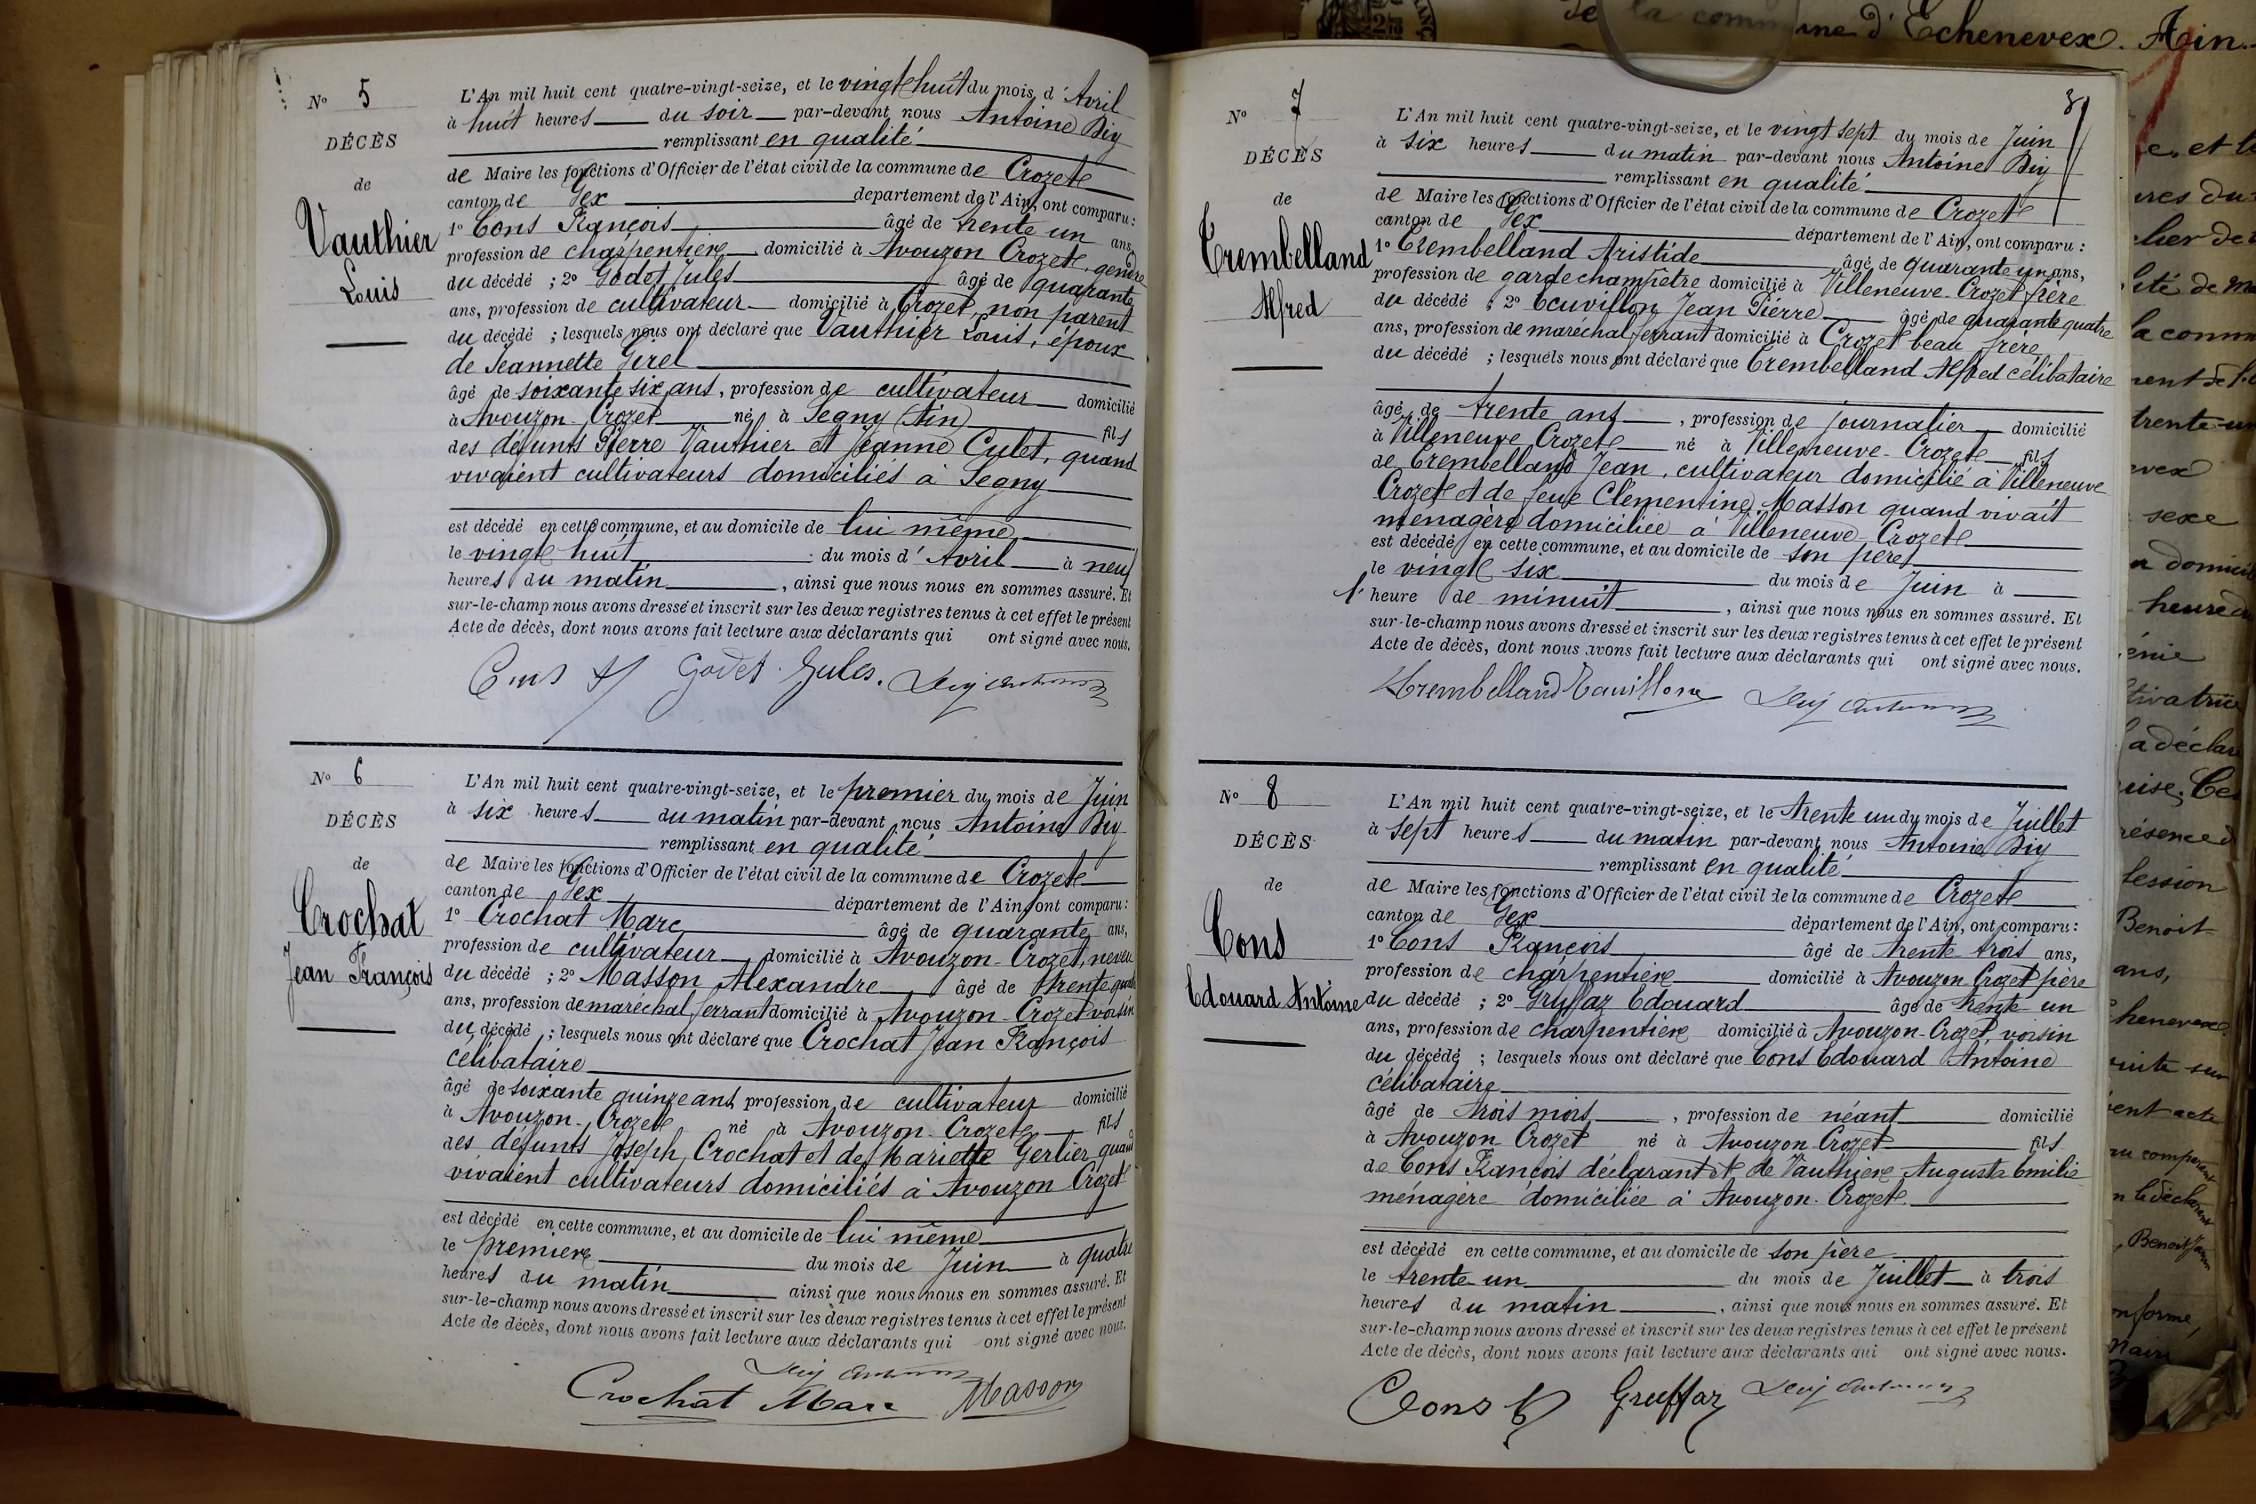 N° 5
DÉCÈS
de
Vauthier
Louis
L'An mil huit cent quatre-vingt-seize, et le vingt huit du mois d'Avril
à huit heures du soir par-devant nous Antoine
remplissant en qualité
de Maire les fonctions d'Officier de l'état civil de la commune de Crozet
canton de Gex département de l'Ain, ont comparu :
1° Cons François âgé de trente un ans,
profession de charpentier domicilié à Avouzon Crozet, gendre
du décédé ; 2° Godet Jules âgé de quarante
ans, profession de cultivateur domicilié à Crozet, non parent
du décédé ; lesquels nous ont déclaré que Vauthier Louis, époux
de Jeannette Girel
âgé de soixante six ans, profession de cultivateur domicilié
à Avouzon Crozet né à Segny (Ain) fils
des défunts Pierre Vauthier et Jeanne Culet, quand
vivaient cultivateurs domiciliés à Segny
est décédé en cette commune, et au domicile de lui même
le vingt huit du mois d'Avril à neuf
heures du matin, ainsi que nous nous en sommes assuré. Et
sur-le-champ nous avons dressé et inscrit sur les deux registres tenus à cet effet le présent
Acte de décès, dont nous avons fait lecture aux déclarants qui ont signé avec nous.
Cons f Godet Jules.
N° 6
DÉCÈS
de
Crochat
Jean François
L'An mil huit cent quatre-vingt-seize, et le premier du mois de Juin
à six heures du matin par-devant nous Antoine
remplissant en qualité
de Maire les fonctions d'Officier de l'état civil de la commune de Crozet
canton de Gex département de l'Ain, ont comparu :
1° Crochat Marc âgé de quarante ans,
profession de cultivateur domicilié à Avouzon-Crozet, neveu
du décédé ; 2° Masson Alexandre âgé de trente quatre
ans, profession de maréchal ferrant domicilié à Avouzon-Crozet voisin
du décédé ; lesquels nous ont déclaré que Crochat Jean François
célibataire
âgé de soixante quinze ans, profession de cultivateur domicilié
à Avouzon-Crozet né à Avouzon-Crozet fils
des défunts Joseph Crochat et de Mariette Gerlier quand
vivaient cultivateurs domiciliés à Avouzon Crozet
est décédé en cette commune, et au domicile de lui même
le premier du mois de Juin à quatre
heures du matin ainsi que nous nous en sommes assuré. Et
sur-le-champ nous avons dressé et inscrit sur les deux registres tenus à cet effet le présent
Acte de décès, dont nous avons fait lecture aux déclarants qui ont signé avec nous.
Crochat Marc Masson
8
N° 7
DÉCÈS
de
Trembelland
Alfred
L'An mil huit cent quatre-vingt-seize, et le vingt sept du mois de Juin
à six heures du matin par-devant nous Antoine
remplissant en qualité
de Maire les fonctions d'Officier de l'état civil de la commune de Crozet
canton de Gex département de l'Ain, ont comparu :
1° Trembelland Aristide âgé de quarante un ans,
profession de garde champêtre domicilié à Villeneuve-Crozet frère
du décédé ; 2° Jean Pierre âgé de quarante quatre
ans, profession de maréchal ferrant domicilié à Crozet beau frère
du décédé ; lesquels nous ont déclaré que Trembelland Alfred célibataire
âgé de trente ans, profession de journalier domicilié
à Villeneuve Crozet né à Villeneuve-Crozet fils
de Trembelland Jean, cultivateur domicilié à Villeneuve
Crozet et de feue Clémentine Masson quand vivait
ménagère domiciliée à Villeneuve-Crozet
est décédé en cette commune, et au domicile de son père
le vingt six du mois de Juin à
l'heure de minuit, ainsi que nous nous en sommes assuré. Et
sur-le-champ nous avons dressé et inscrit sur les deux registres tenus à cet effet le présent
Acte de décès, dont nous avons fait lecture aux déclarants qui ont signé avec nous.
Trembelland
N° 8
DÉCÈS
de
Cons
Edouard Antoine
L'An mil huit cent quatre-vingt-seize, et le trente un du mois de Juillet
à sept heures du matin par-devant nous Antoine
remplissant en qualité
de Maire les fonctions d'Officier de l'état civil de la commune de Crozet
canton de Gex département de l'Ain, ont comparu :
1° Cons François âgé de trente trois ans,
profession de charpentier domicilié à Avouzon Crozet père
du décédé ; 2° Gruffaz Edouard âgé de trente un
ans, profession de charpentier domicilié à Avouzon-Crozet, voisin
du décédé ; lesquels nous ont déclaré que Cons Edouard Antoine
célibataire
âgé de trois mois, profession de néant domicilié
à Avouzon Crozet né à Avouzon Crozet fils
de Cons François déclarant et de Vauthier Augusta Emilie
ménagère domiciliée à Avouzon-Crozet
est décédé en cette commune, et au domicile de son père
le trente un du mois de Juillet à trois
heures du matin, ainsi que nous nous en sommes assuré. Et
sur-le-champ nous avons dressé et inscrit sur les deux registres tenus à cet effet le présent
Acte de décès, dont nous avons fait lecture aux déclarants qui ont signé avec nous.
Cons f Gruffaz
de la commune d'Echenevex. Ain.